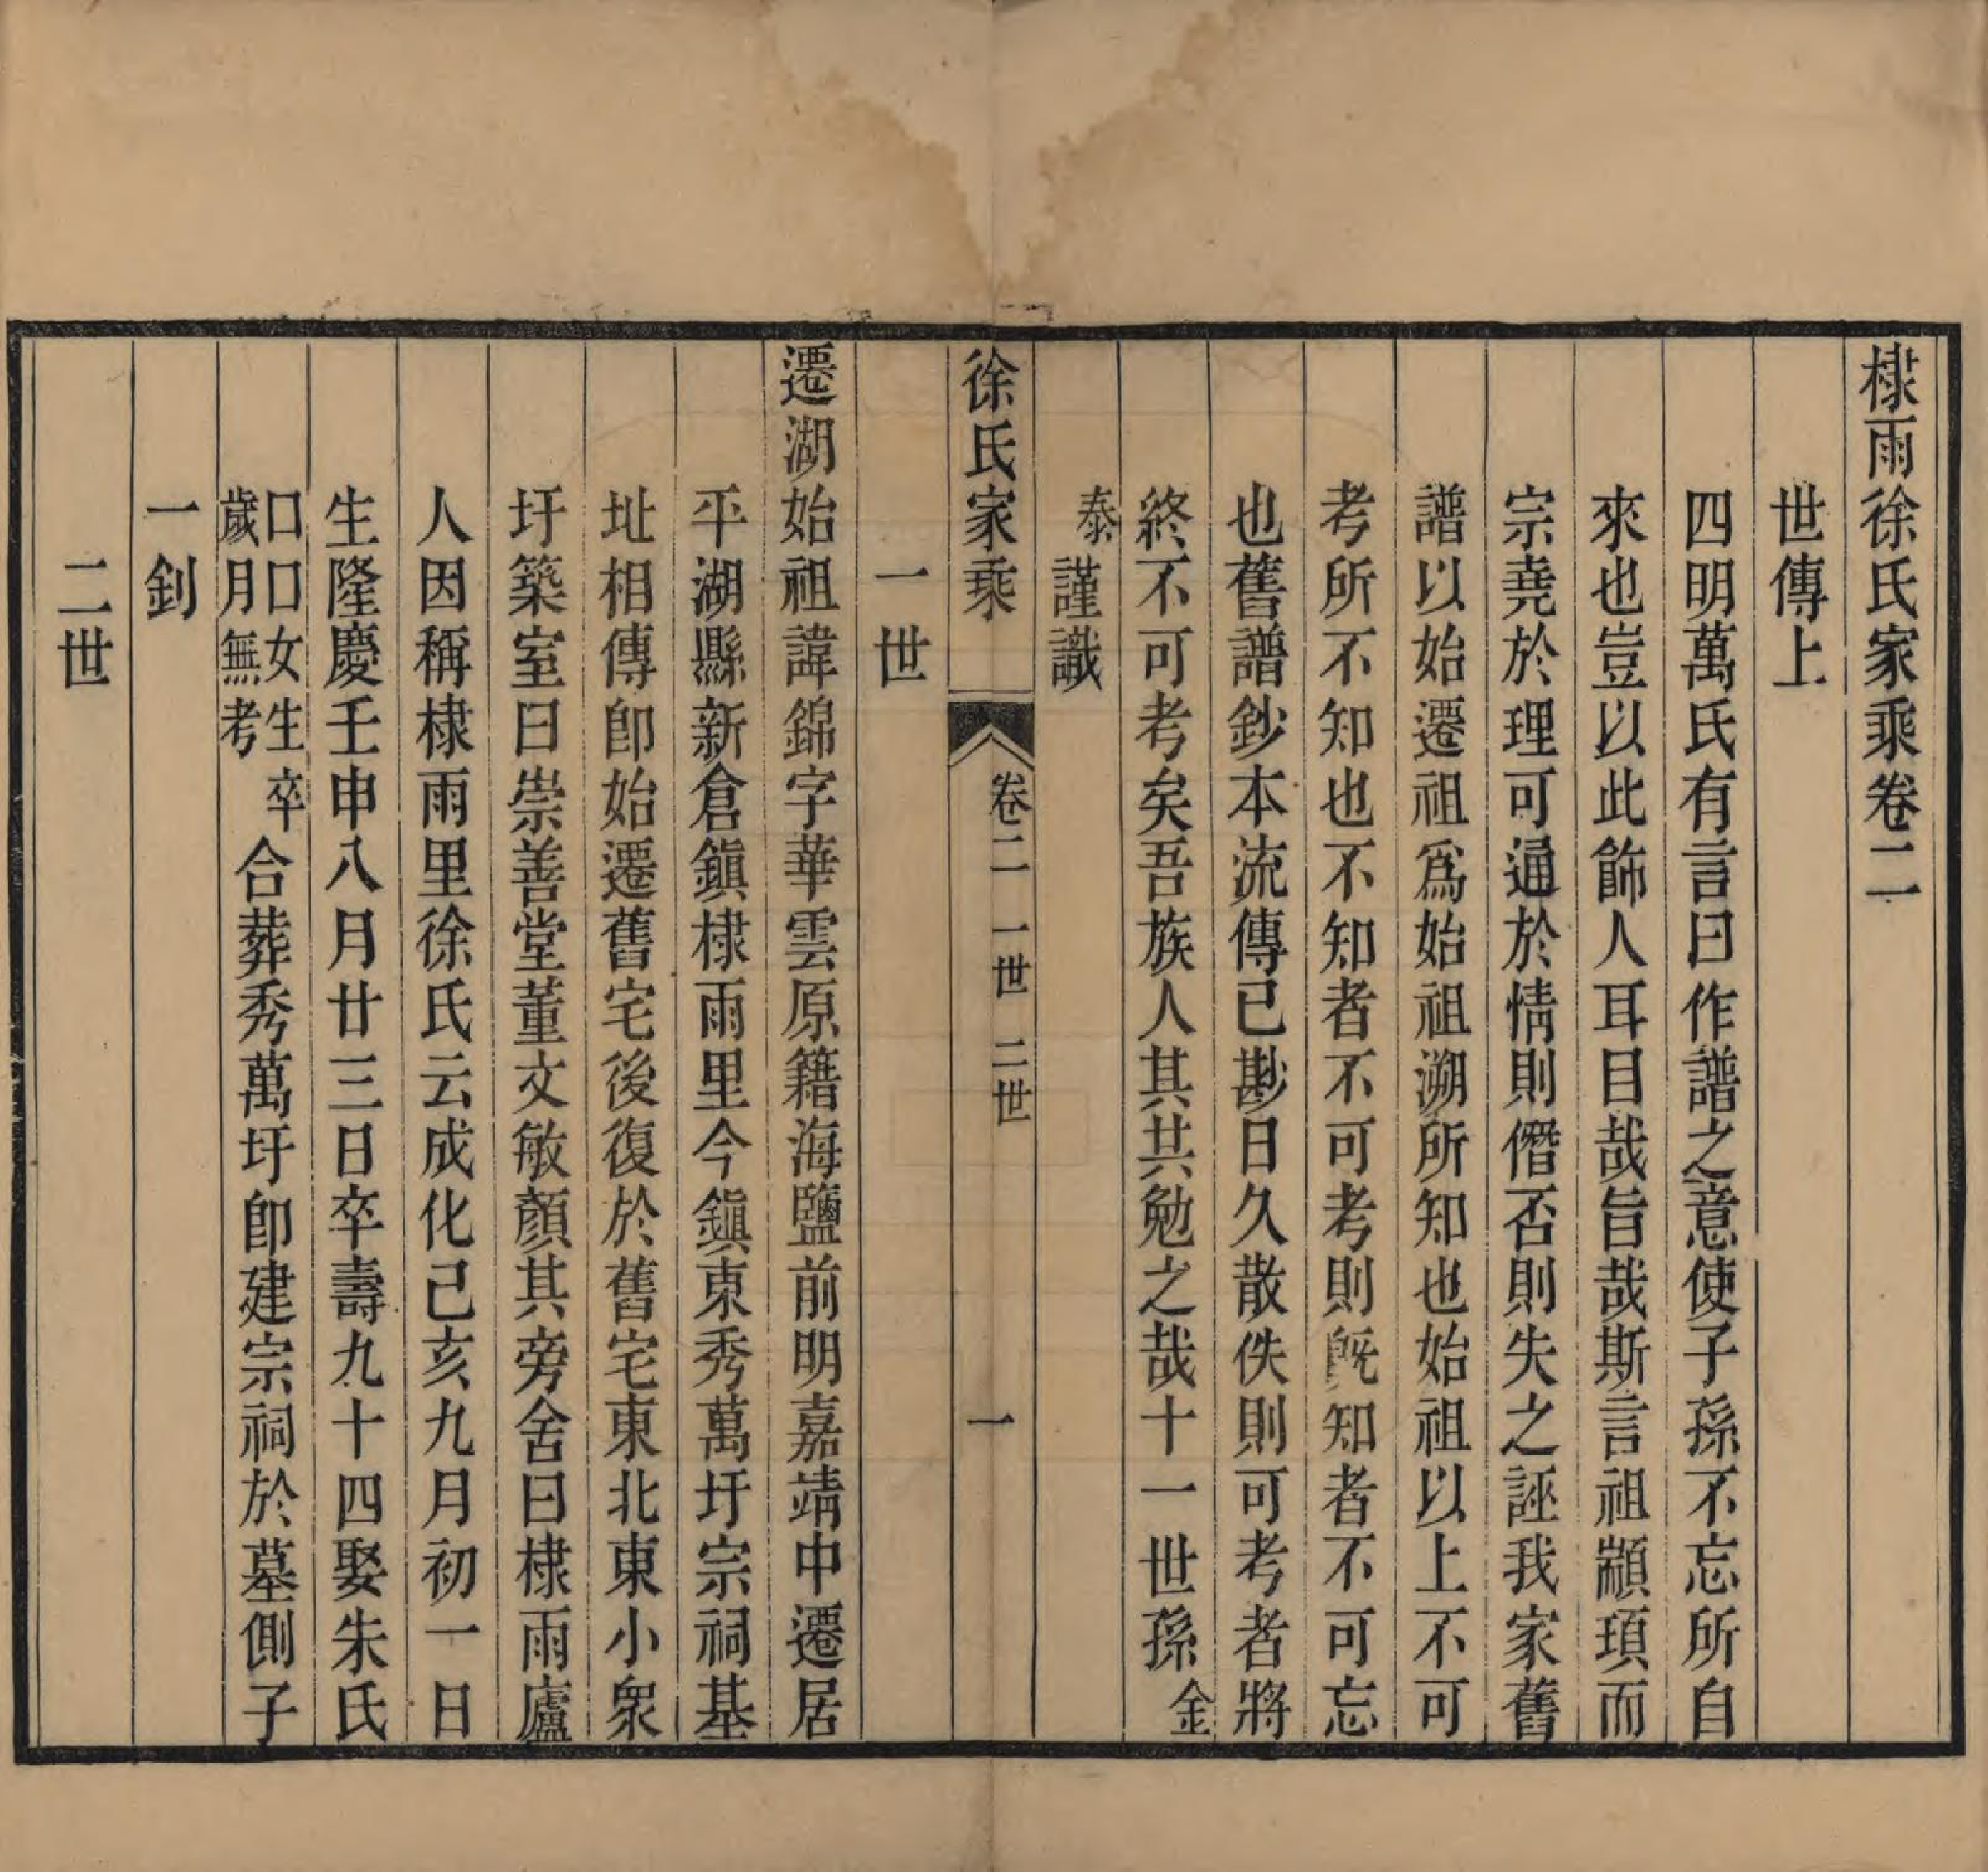 棣雨徐氏家乘卷二
世傳上
四明萬氏有言曰作譜之意使子孫不忘所自
來也豈以此飾人耳目哉旨哉斯言祖顓頊而
宗堯於理可通於情則僭否則失之誣我家舊
譜以始遷祖爲始祖溯所知也始祖以上不可
考所不知也不知者不可考則旣知者不可忘
也舊譜鈔本流傳已尠日久散佚則可考者將
終不可考矣吾族人其共勉之哉十一世孫金
泰謹識
徐氏家乘 卷二 一世 二世 一
一世
遷湖始祖諱錦字華雲原籍海鹽前明嘉靖中遷居
平湖縣新倉鎭棣雨里今鎭東秀萬圩宗祠基
址相傳卽始遷舊宅後復於舊宅東北東小衆
圩築室曰崇善堂董文敏顏其旁舍曰棣雨廬
人因稱棣雨里徐氏云成化己亥九月初一日
生隆慶壬申八月廿三日卒壽九十四娶朱氏
口口女生卒歲月無考合葬秀萬圩卽建宗祠於墓側子
一釗
二世